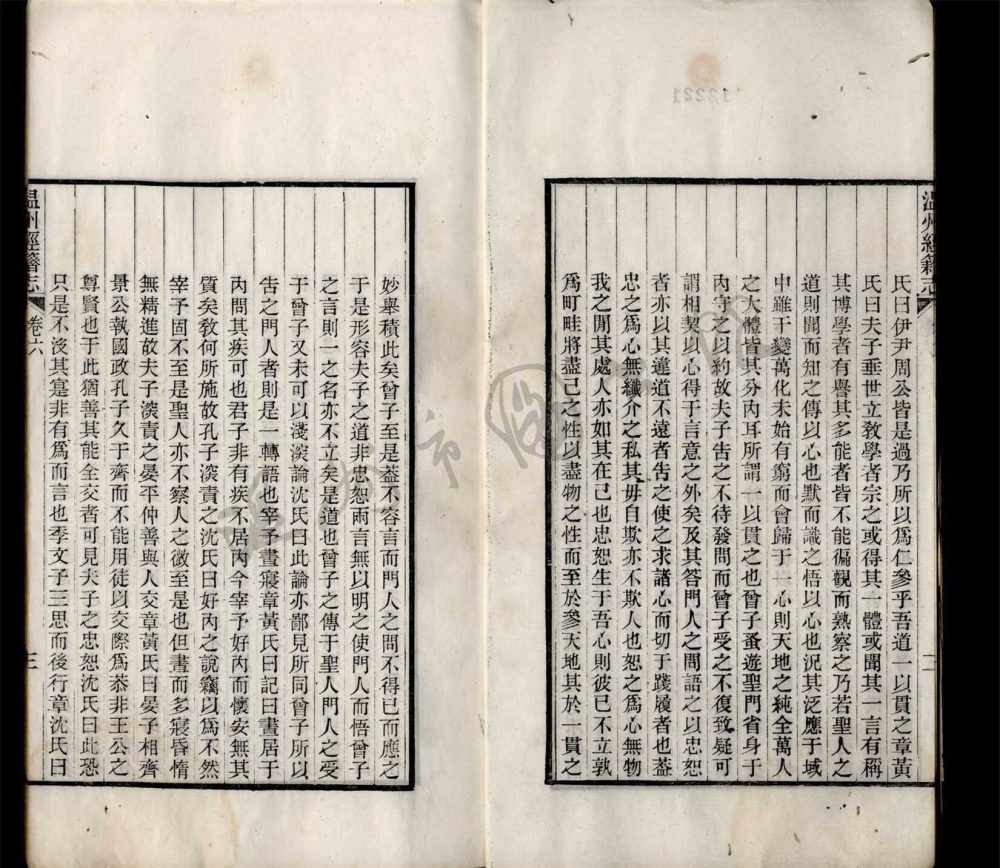 氏曰伊尹周公皆是過乃所以爲仁參乎吾道一以貫之章黃
氏曰夫子垂世立敎學者宗之或得其一體或聞其一言有稱
其博學者有譽其多能者皆不能徧觀而熟察之乃若聖人之
道則聞而知之傳以心也默而識之悟以心也況其泛應于域
中雖千變萬化未始有窮而會歸于一心則天地之純全萬人
之大體皆其分內耳所謂一以貫之也曾子蚤遊聖門省身于
內守之以約故夫子告之不待發問而曾子受之不復致疑可
謂相契以心得于言意之外矣及其答門人之問語之以忠恕
者亦以其違道不遠者告之使之求諸心而切于踐履者也葢
忠之爲心無纖介之私其毋自欺亦不欺人也恕之爲心無物
我之閒其處人亦如其在己也忠恕生于吾心則彼已不立孰
爲町畦將盡己之性以盡物之性而至於參天地其於一貫之
温州經籍志
二
妙舉積此矣曾子至是葢不容言而門人之問不得已而應之
于是形容夫子之道非忠恕兩言無以明之使門人而悟曾子
之言則一之名亦不立矣是道也曾子之傳于聖人門人之受
于曾子又未可以淺深論沈氏曰此論亦鄙見所同曾子所以
告之門人者則是一轉語也宰予晝寢章黃氏曰記曰晝居于
內問其疾可也君子非有疾不居內今宰予好內而懷安無其
質矣敎何所施故孔子深責之沈氏曰好內之說竊以爲不然
宰予固不至是聖人亦不察人之微至是也但晝而多寢昏惰
無精進故夫子深責之晏平仲善與人交章黃氏曰晏子相齊
景公執國政孔子久于齊而不能用徒以交際爲恭非王公之
尊賢也于此猶善其能全交者可見夫子之忠恕沈氏曰此恐
只是不沒其寔非有爲而言也季文子三思而後行章沈氏曰
温州經籍志
卷六
三
12221